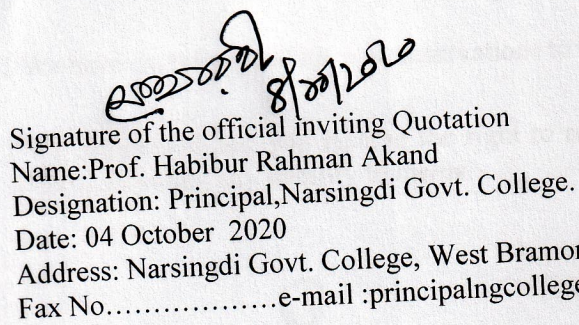 ৪/১০/২০২০
Signature of the official inviting Quotation
Name:Prof. Habibur Rahman Akand
Designation: Principal,Narsingdi Govt. College.
Date: 04 October 2020
Address: Narsingdi Govt. College, West Bramon
Fax No..................e-mail :principalngcollege